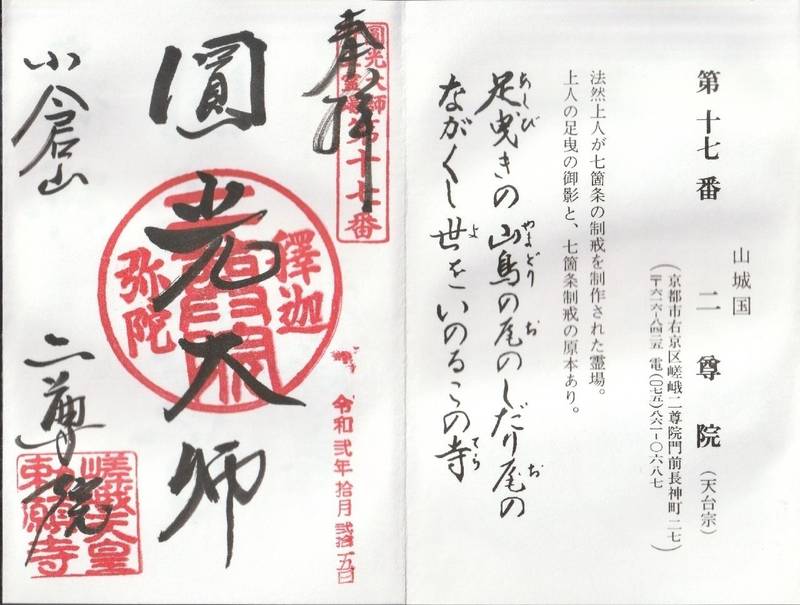 山城国
第十七番 二尊院（天台宗）
（京都市右京区嵯峨二尊院門前長神町二七
〒六一六－八四二五 電（〇七五）八六一－〇六八七）
法然上人が七箇条の制戒を制作された霊場。
上人の足曳の御影と、七箇条制戒の原本あり。
足曳きの山鳥の尾のしだり尾の
あしび やまどり お お
ながくし世をいのるこの寺
よ てら
圓光大師
霊場
第十七番
奉拝
圓光大師
釋迦
弥陀
令和弐年拾月弐拾五日
小倉山
二尊院
嵯峨天皇
勅願寺